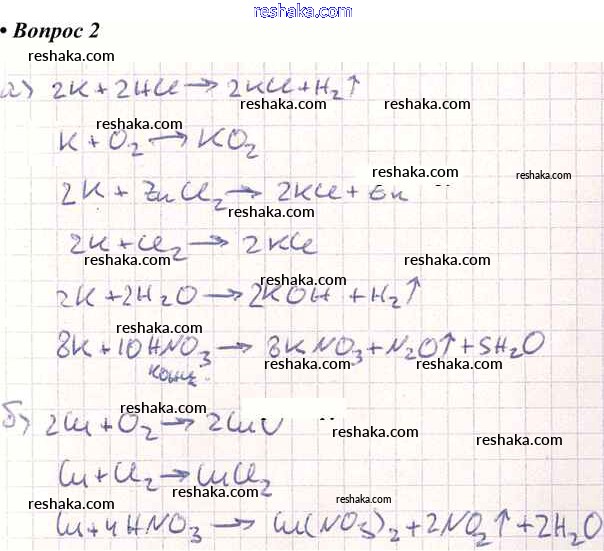 www.reshaka.com
• Вопрос 2
reshaka.com
а) 2K + 2HCl → 2KCl + H₂↑
reshaka.com reshaka.com
reshaka.com
K + O₂ → KO₂
reshaka.com reshaka.com
2K + ZnCl₂ → 2KCl + Zn
reshaka.com
2K + Cl₂ → 2KCl
reshaka.com reshaka.com
reshaka.com
2K + 2H₂O → 2KOH + H₂↑
reshaka.com
8K + 10HNO₃ → 8KNO₃ + N₂O↑ + 5H₂O
конц. reshaka.com
reshaka.com
б) 2Cu + O₂ → 2CuO
reshaka.com
Cu + Cl₂ → CuCl₂
reshaka.com reshaka.com reshaka.com
Cu + 4HNO₃ → Cu(NO₃)₂ + 2NO₂↑ + 2H₂O